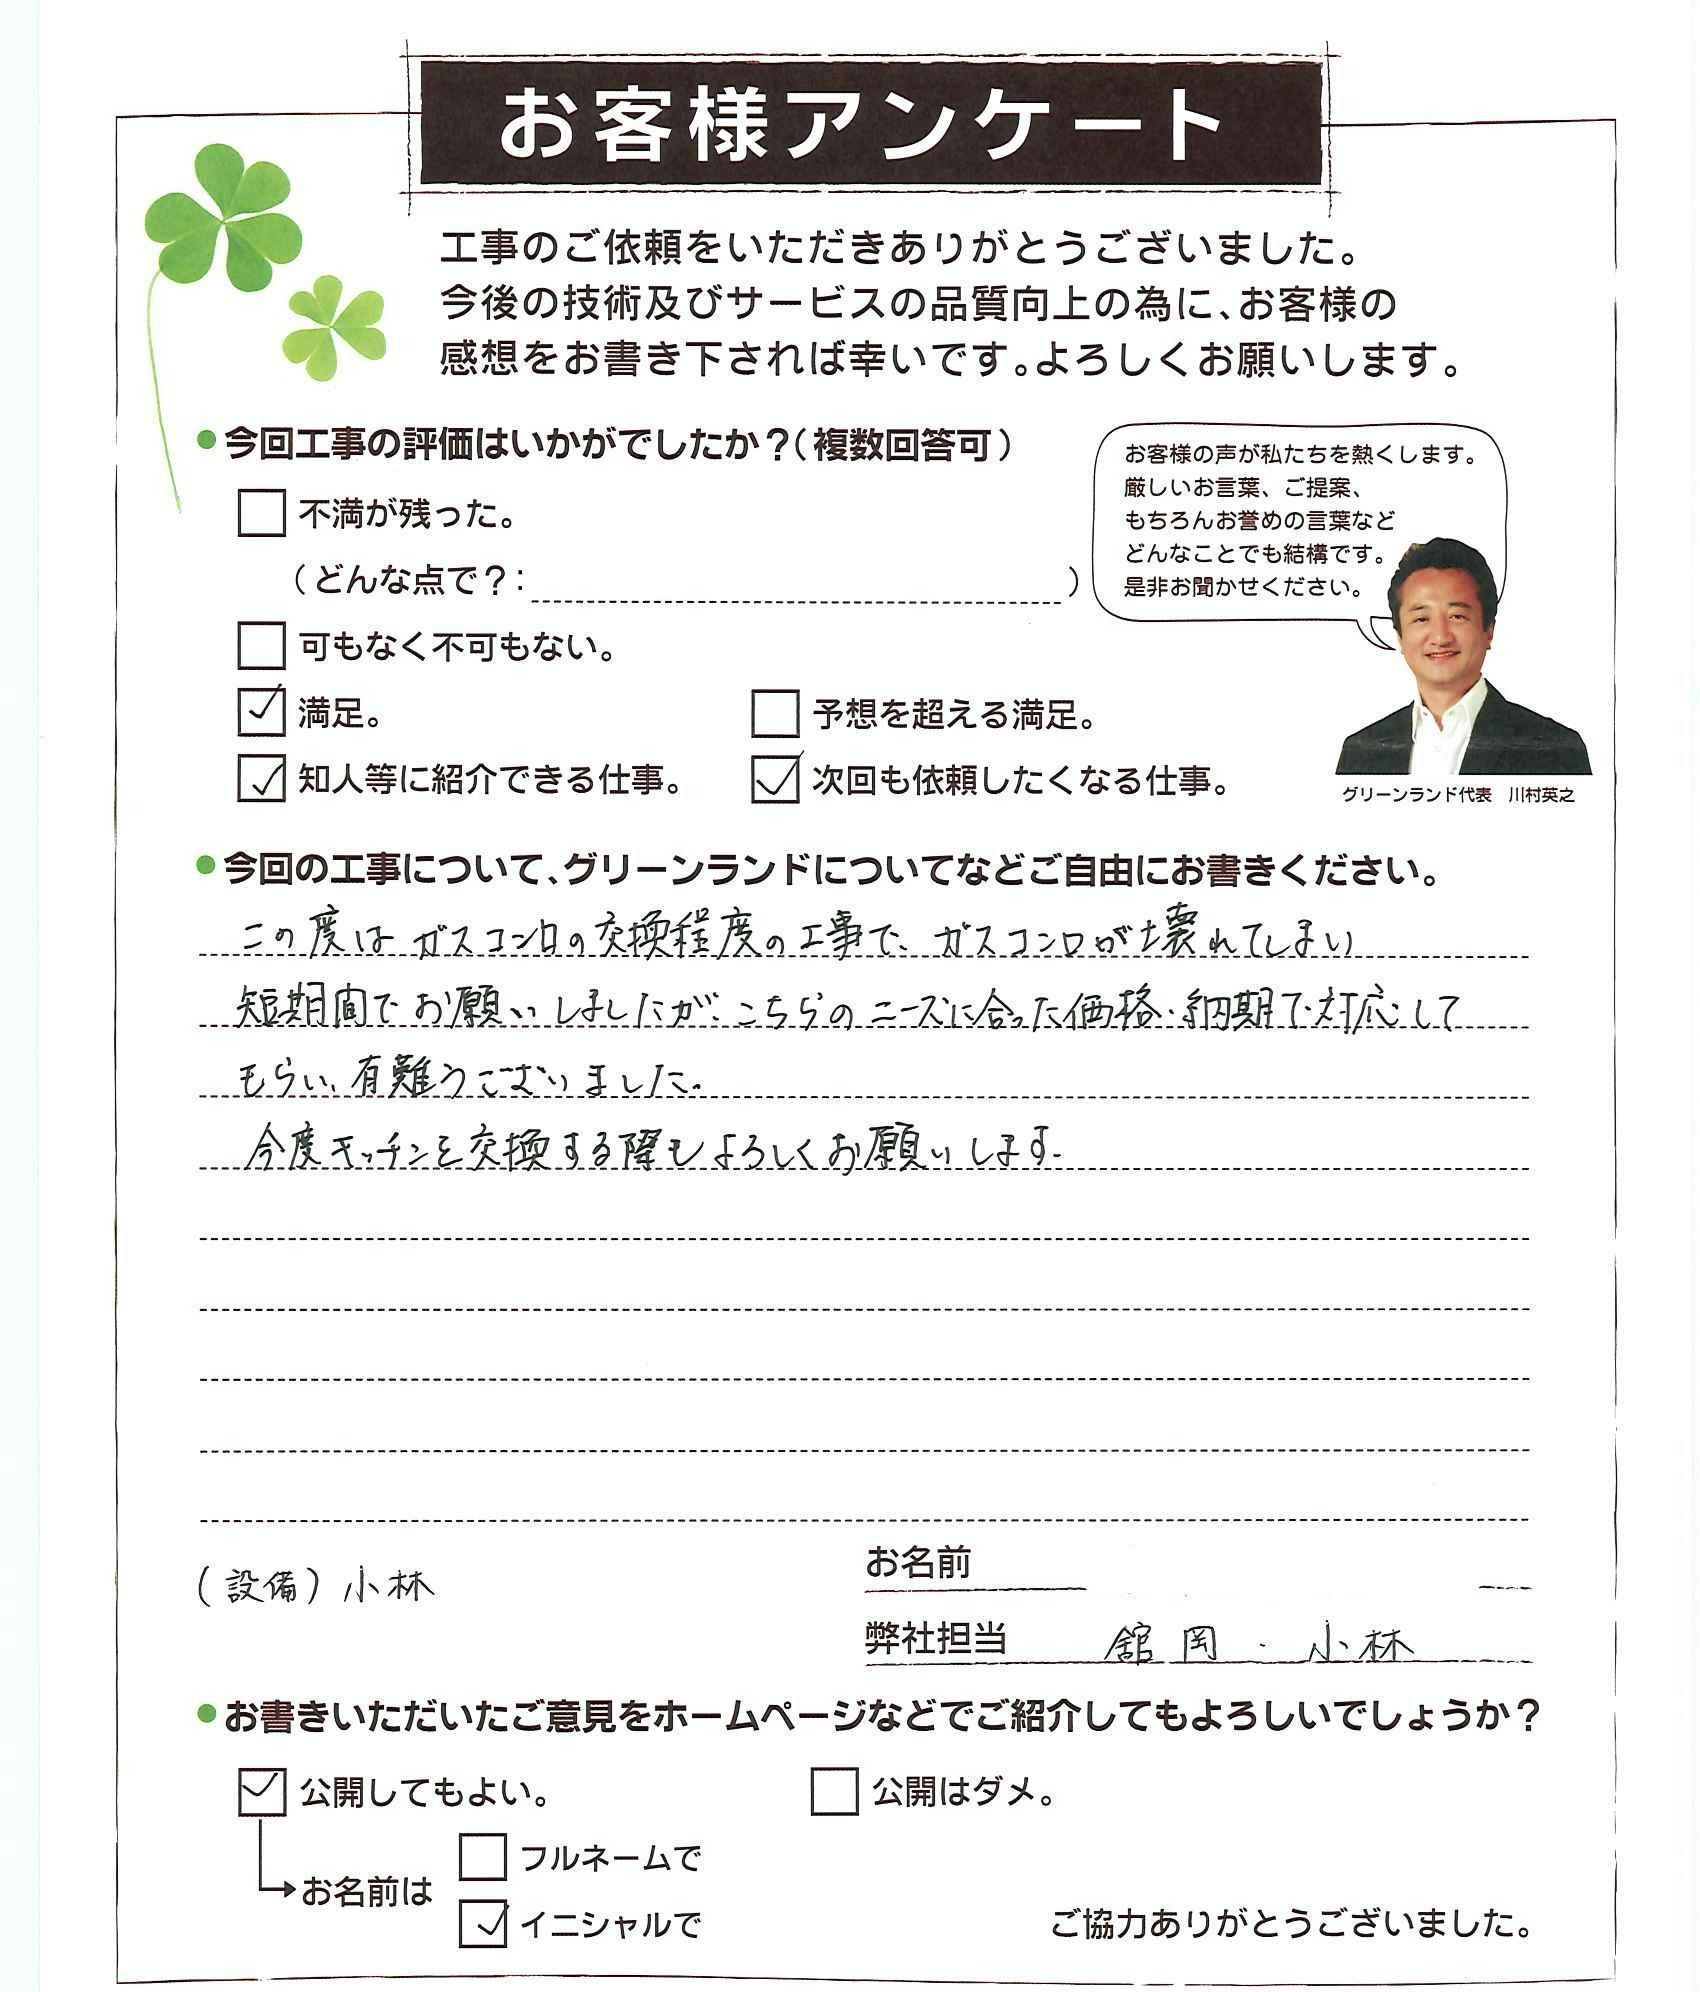 お客様アンケート
工事のご依頼をいただきありがとうございました。
今後の技術及びサービスの品質向上の為に、お客様の
感想をお書き下されば幸いです。よろしくお願いします。
今回工事の評価はいかがでしたか？（複数回答可）
不満が残った。
（どんな点で？： ）
可もなく不可もない。
満足。
予想を超える満足。
知人等に紹介できる仕事。
次回も依頼したくなる仕事。
お客様の声が私たちを熱くします。
厳しいお言葉、ご提案、
もちろんお誉めの言葉など
どんなことでも結構です。
是非お聞かせください。
グリーンランド代表　川村英之
今回の工事について、グリーンランドについてなどご自由にお書きください。
この度はガスコンロの交換程度の工事で、ガスコンロが壊れてしまい
短期間でお願いしましたが、こちらのニーズに合った価格・納期で対応して
もらい、有難うございました。
今度キッチンを交換する際もよろしくお願いします。
（設備）小林
お名前
弊社担当　舘岡・小林
お書きいただいたご意見をホームページなどでご紹介してもよろしいでしょうか？
公開してもよい。
公開はダメ。
お名前は
フルネームで
イニシャルで
ご協力ありがとうございました。